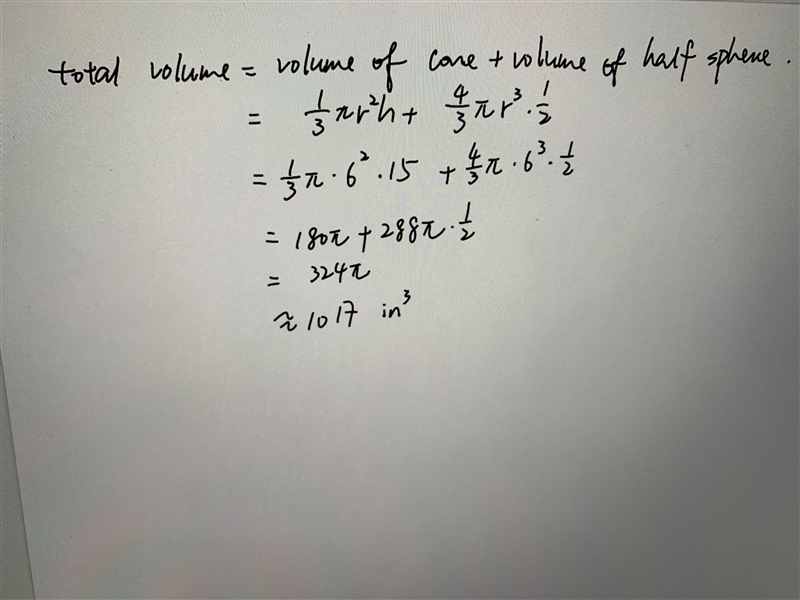 total volume = volume of cone + volume of half sphere.
= 1/3 πr²h + 4/3 πr³ · 1/2
= 1/3 π · 6² · 15 + 4/3 π · 6³ · 1/2
= 180π + 288π · 1/2
= 324π
≈ 1017 in³